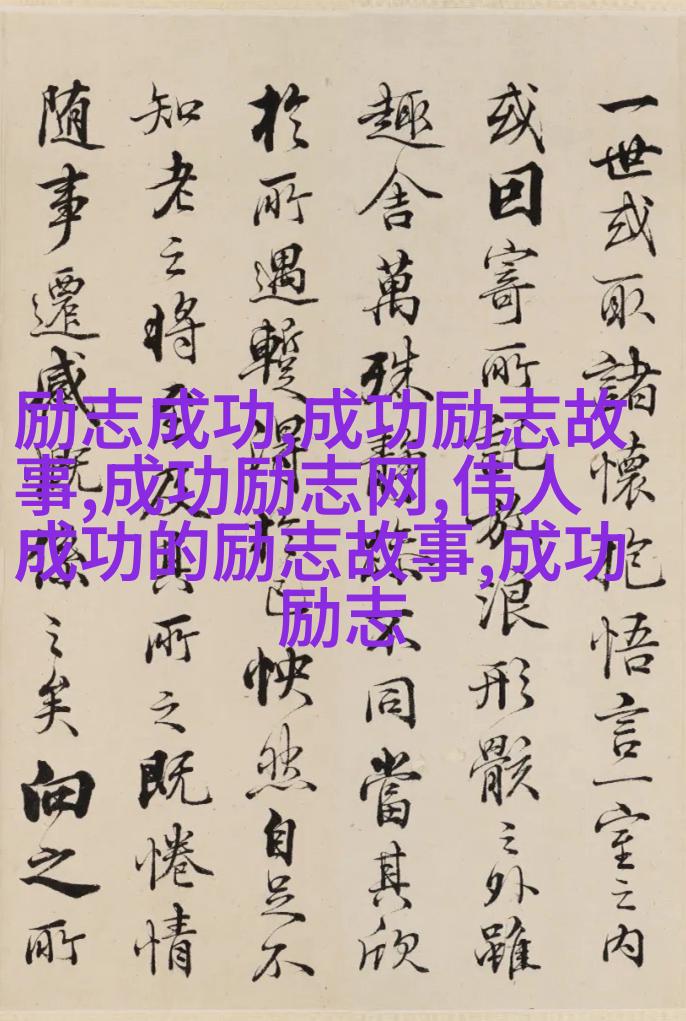 一世或取諸懷抱悟言一室之内
或因寄所託放浪形骸之外雖
趣舍萬殊靜不同當其欣
於所遇蹔得於己怏然自足不
知老之將至及其所之既惓情
随事遷感慨係之矣向之所
励志成功,成功励志故
事,成功励志网,伟人
成功的励志故事,成功
励志